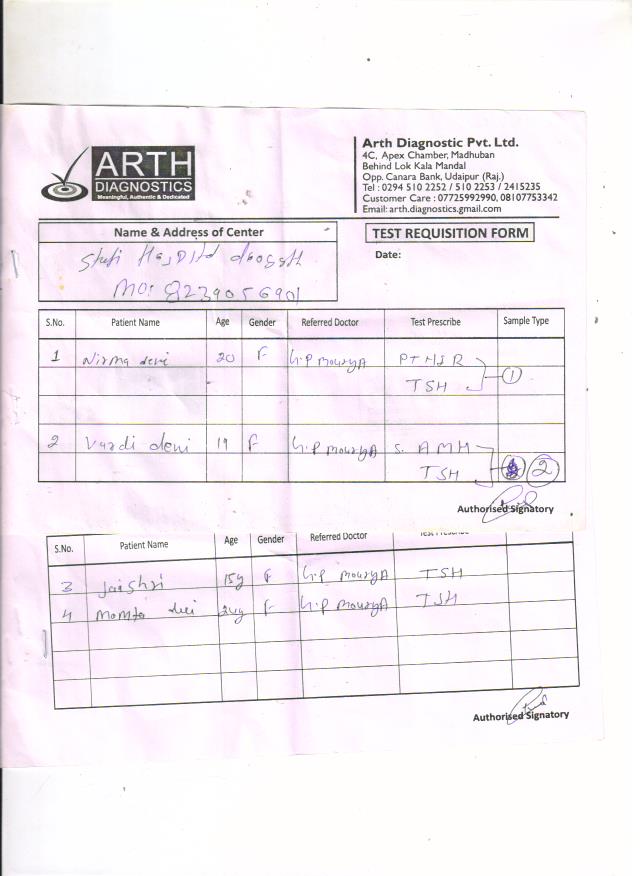 ARTH
DIAGNOSTICS
Meaningful, Authentic & Dedicated
Arth Diagnostic Pvt. Ltd.
4C, Apex Chamber, Madhuban
Behind Lok Kala Mandal
Opp. Canara Bank, Udaipur (Raj.)
Tel : 0294 510 2252 / 510 2253 / 2415235
Customer Care : 07725992990, 08107753342
Email: arth.diagnostics.gmail.com
Name & Address of Center
TEST REQUISITION FORM
Date:
MO: 8239056901
S.No. Patient Name Age Gender Referred Doctor Test Prescribe Sample Type
1 Nirma devi 20 F G.P MouryA
TSH 1
2 Vardi devi 19 F G.P MouryA S. AMH
TSH 2
Authorised Signatory
S.No. Patient Name Age Gender Referred Doctor Test Prescribe
3 Jaishri 15y F G.P MouryA TSH
4 Momta devi 24y F G.P MouryA TSH
Authorised Signatory